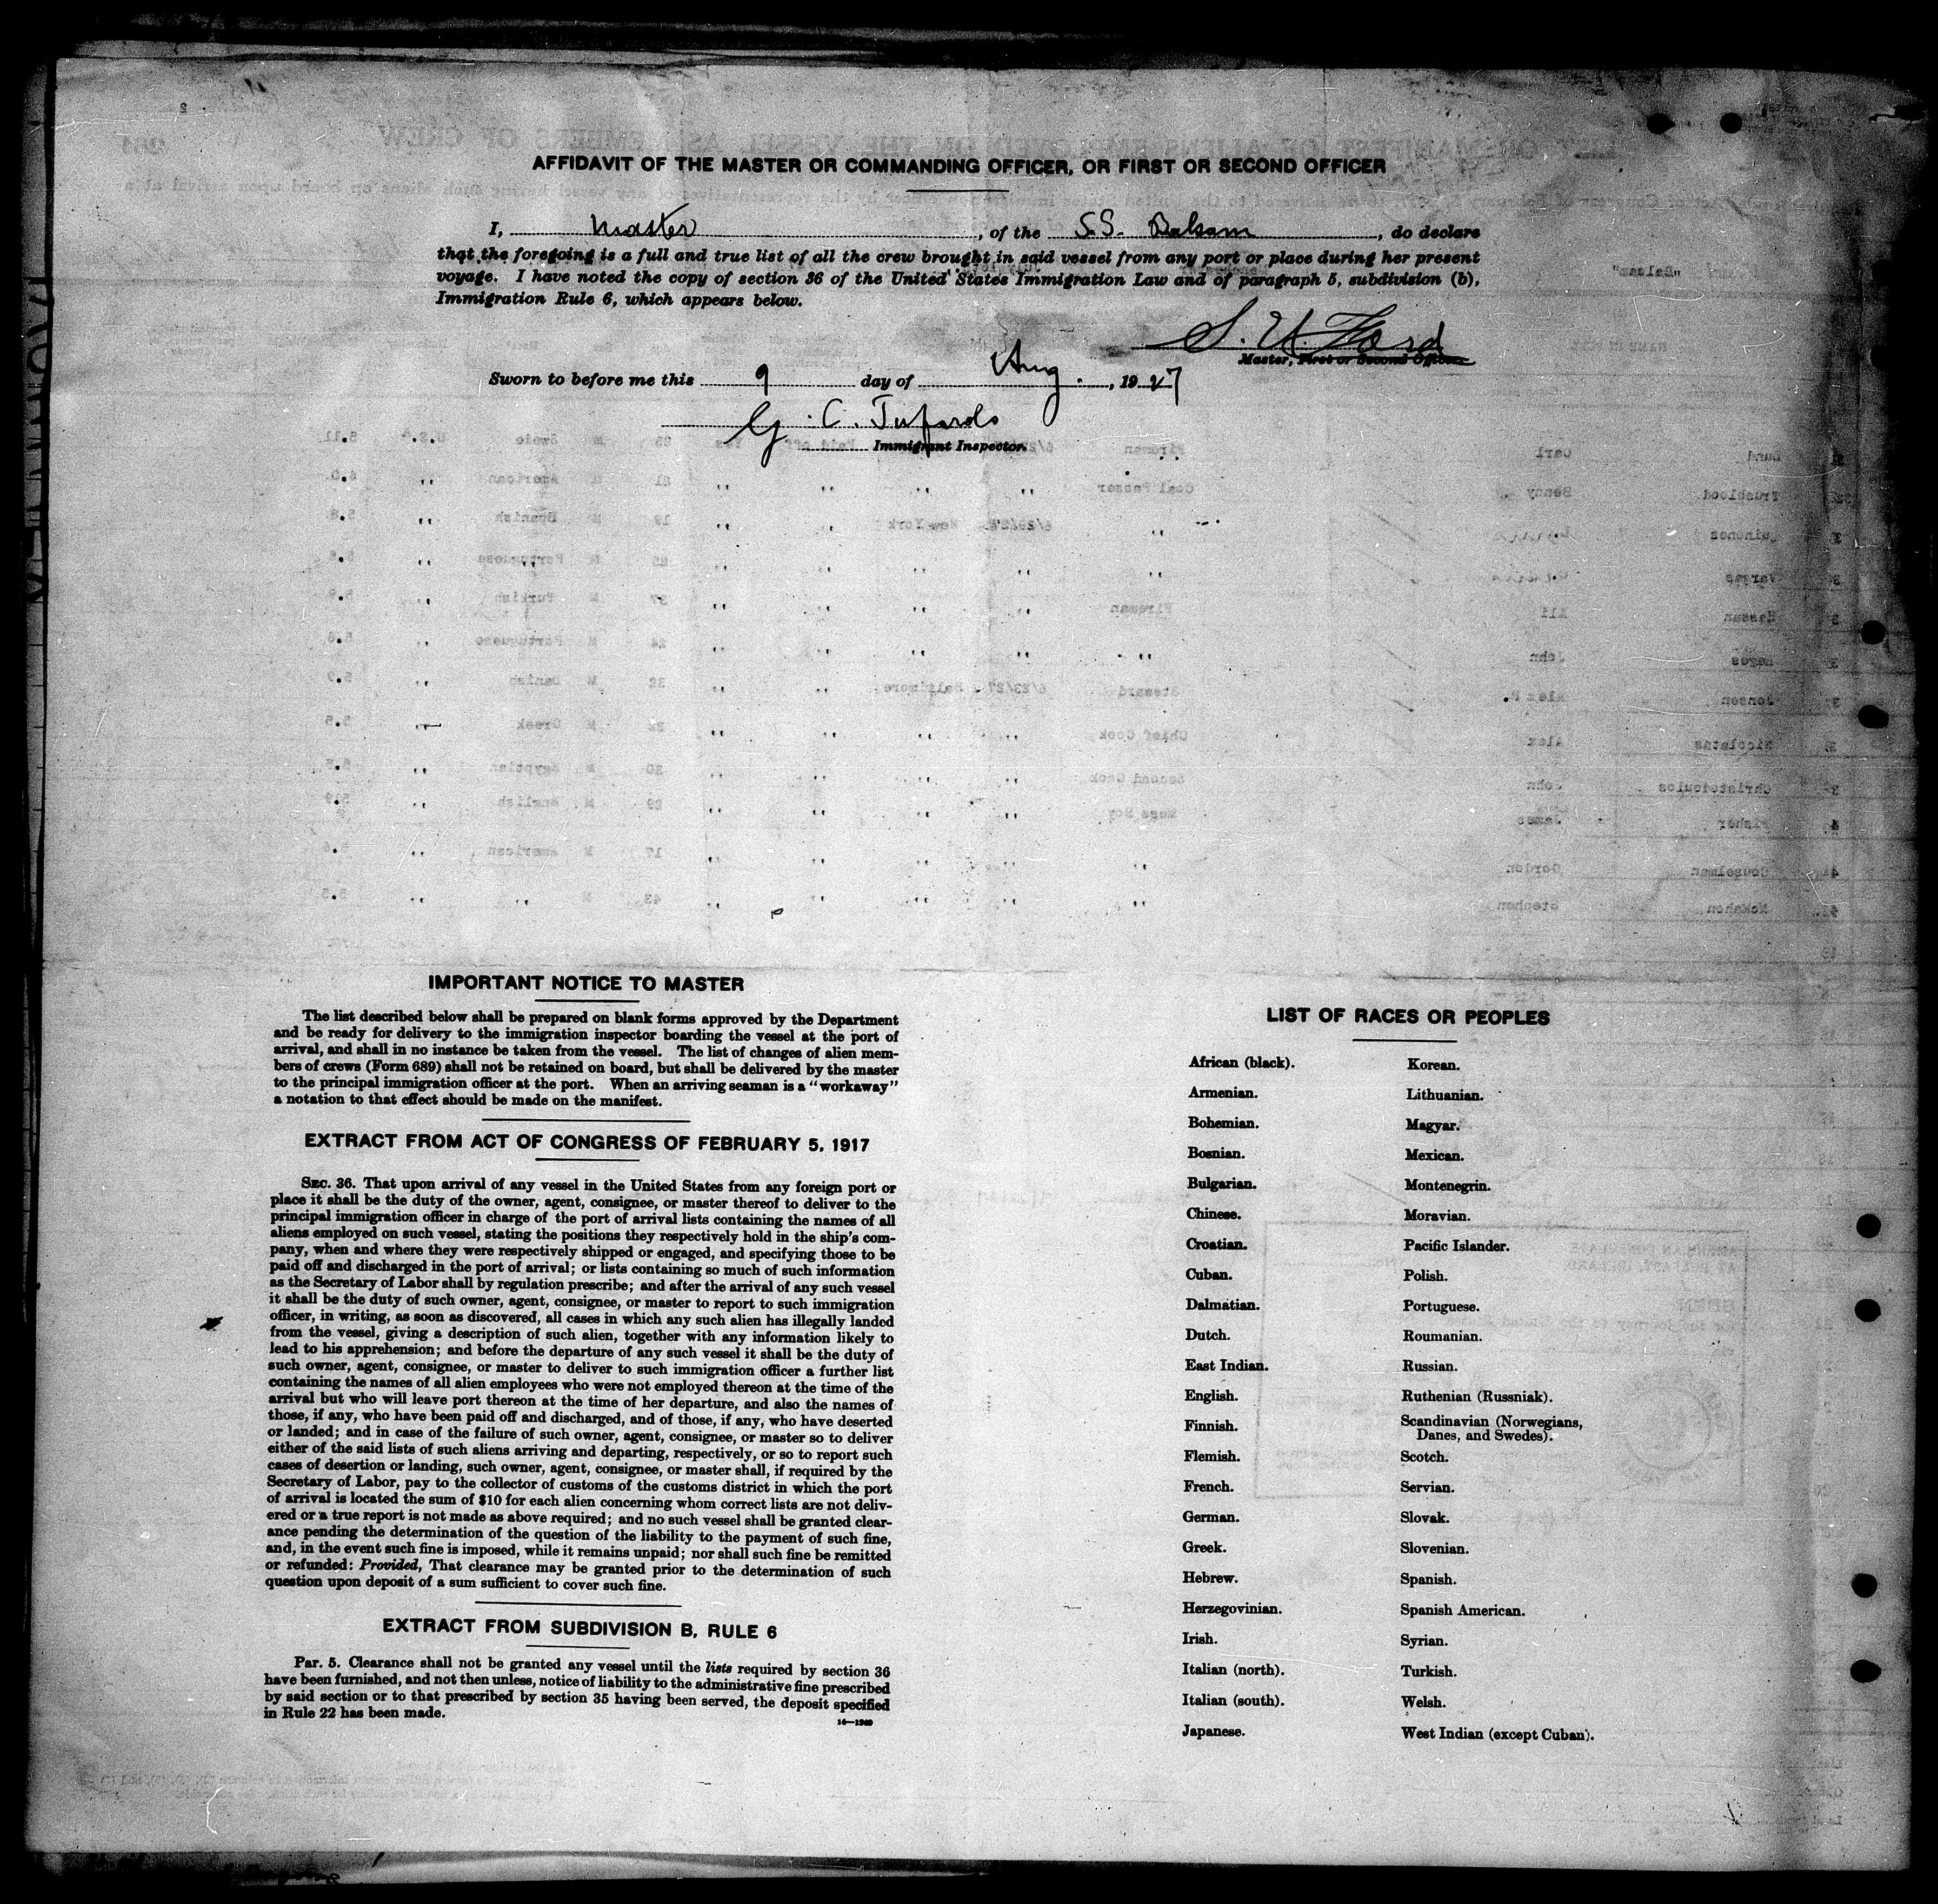 AFFIDAVIT OF THE MASTER OR COMMANDING OFFICER, OR FIRST OR SECOND OFFICER
I, Master, of the S.S. Balsam, do declare
that the foregoing is a full and true list of all the crew brought in said vessel from any port or place during her present
voyage. I have noted the copy of section 36 of the United States Immigration Law and of paragraph 5, subdivision (b),
Immigration Rule 6, which appears below.
S. U. Ford
Master, First or Second Officer.
Sworn to before me this 9 day of Aug., 1927
G. C.
Immigrant Inspector.
IMPORTANT NOTICE TO MASTER
The list described below shall be prepared on blank forms approved by the Department
and be ready for delivery to the immigration inspector boarding the vessel at the port of
arrival, and shall in no instance be taken from the vessel. The list of changes of alien mem-
bers of crews (Form 689) shall not be retained on board, but shall be delivered by the master
to the principal immigration officer at the port. When an arriving seaman is a "workaway"
a notation to that effect should be made on the manifest.
EXTRACT FROM ACT OF CONGRESS OF FEBRUARY 5, 1917
SEC. 36. That upon arrival of any vessel in the United States from any foreign port or
place it shall be the duty of the owner, agent, consignee, or master thereof to deliver to the
principal immigration officer in charge of the port of arrival lists containing the names of all
aliens employed on such vessel, stating the positions they respectively hold in the ship's com-
pany, when and where they were respectively shipped or engaged, and specifying those to be
paid off and discharged in the port of arrival; or lists containing so much of such information
as the Secretary of Labor shall by regulation prescribe; and after the arrival of any such vessel
it shall be the duty of such owner, agent, consignee, or master to report to such immigration
officer, in writing, as soon as discovered, all cases in which any such alien has illegally landed
from the vessel, giving a description of such alien, together with any information likely to
lead to his apprehension; and before the departure of any such vessel it shall be the duty of
such owner, agent, consignee, or master to deliver to such immigration officer a further list
containing the names of all alien employees who were not employed thereon at the time of the
arrival but who will leave port thereon at the time of her departure, and also the names of
those, if any, who have been paid off and discharged, and of those, if any, who have deserted
or landed; and in case of the failure of such owner, agent, consignee, or master so to deliver
either of the said lists of such aliens arriving and departing, respectively, or so to report such
cases of desertion or landing, such owner, agent, consignee, or master shall, if required by the
Secretary of Labor, pay to the collector of customs of the customs district in which the port
of arrival is located the sum of $10 for each alien concerning whom correct lists are not deliv-
ered or a true report is not made as above required; and no such vessel shall be granted clear-
ance pending the determination of the question of the liability to the payment of such fine,
and, in the event such fine is imposed, while it remains unpaid; nor shall such fine be remitted
or refunded: Provided, That clearance may be granted prior to the determination of such
question upon deposit of a sum sufficient to cover such fine.
EXTRACT FROM SUBDIVISION B, RULE 6
Par. 5. Clearance shall not be granted any vessel until the lists required by section 36
have been furnished, and not then unless, notice of liability to the administrative fine prescribed
by said section or to that prescribed by section 35 having been served, the deposit specified
in Rule 22 has been made.
14—1240
LIST OF RACES OR PEOPLES
African (black).
Armenian.
Bohemian.
Bosnian.
Bulgarian.
Chinese.
Croatian.
Cuban.
Dalmatian.
Dutch.
East Indian.
English.
Finnish.
Flemish.
French.
German.
Greek.
Hebrew.
Herzegovinian.
Irish.
Italian (north).
Italian (south).
Japanese.
Korean.
Lithuanian.
Magyar.
Mexican.
Montenegrin.
Moravian.
Pacific Islander.
Polish.
Portuguese.
Roumanian.
Russian.
Ruthenian (Russniak).
Scandinavian (Norwegians,
Danes, and Swedes).
Scotch.
Servian.
Slovak.
Slovenian.
Spanish.
Spanish American.
Syrian.
Turkish.
Welsh.
West Indian (except Cuban).